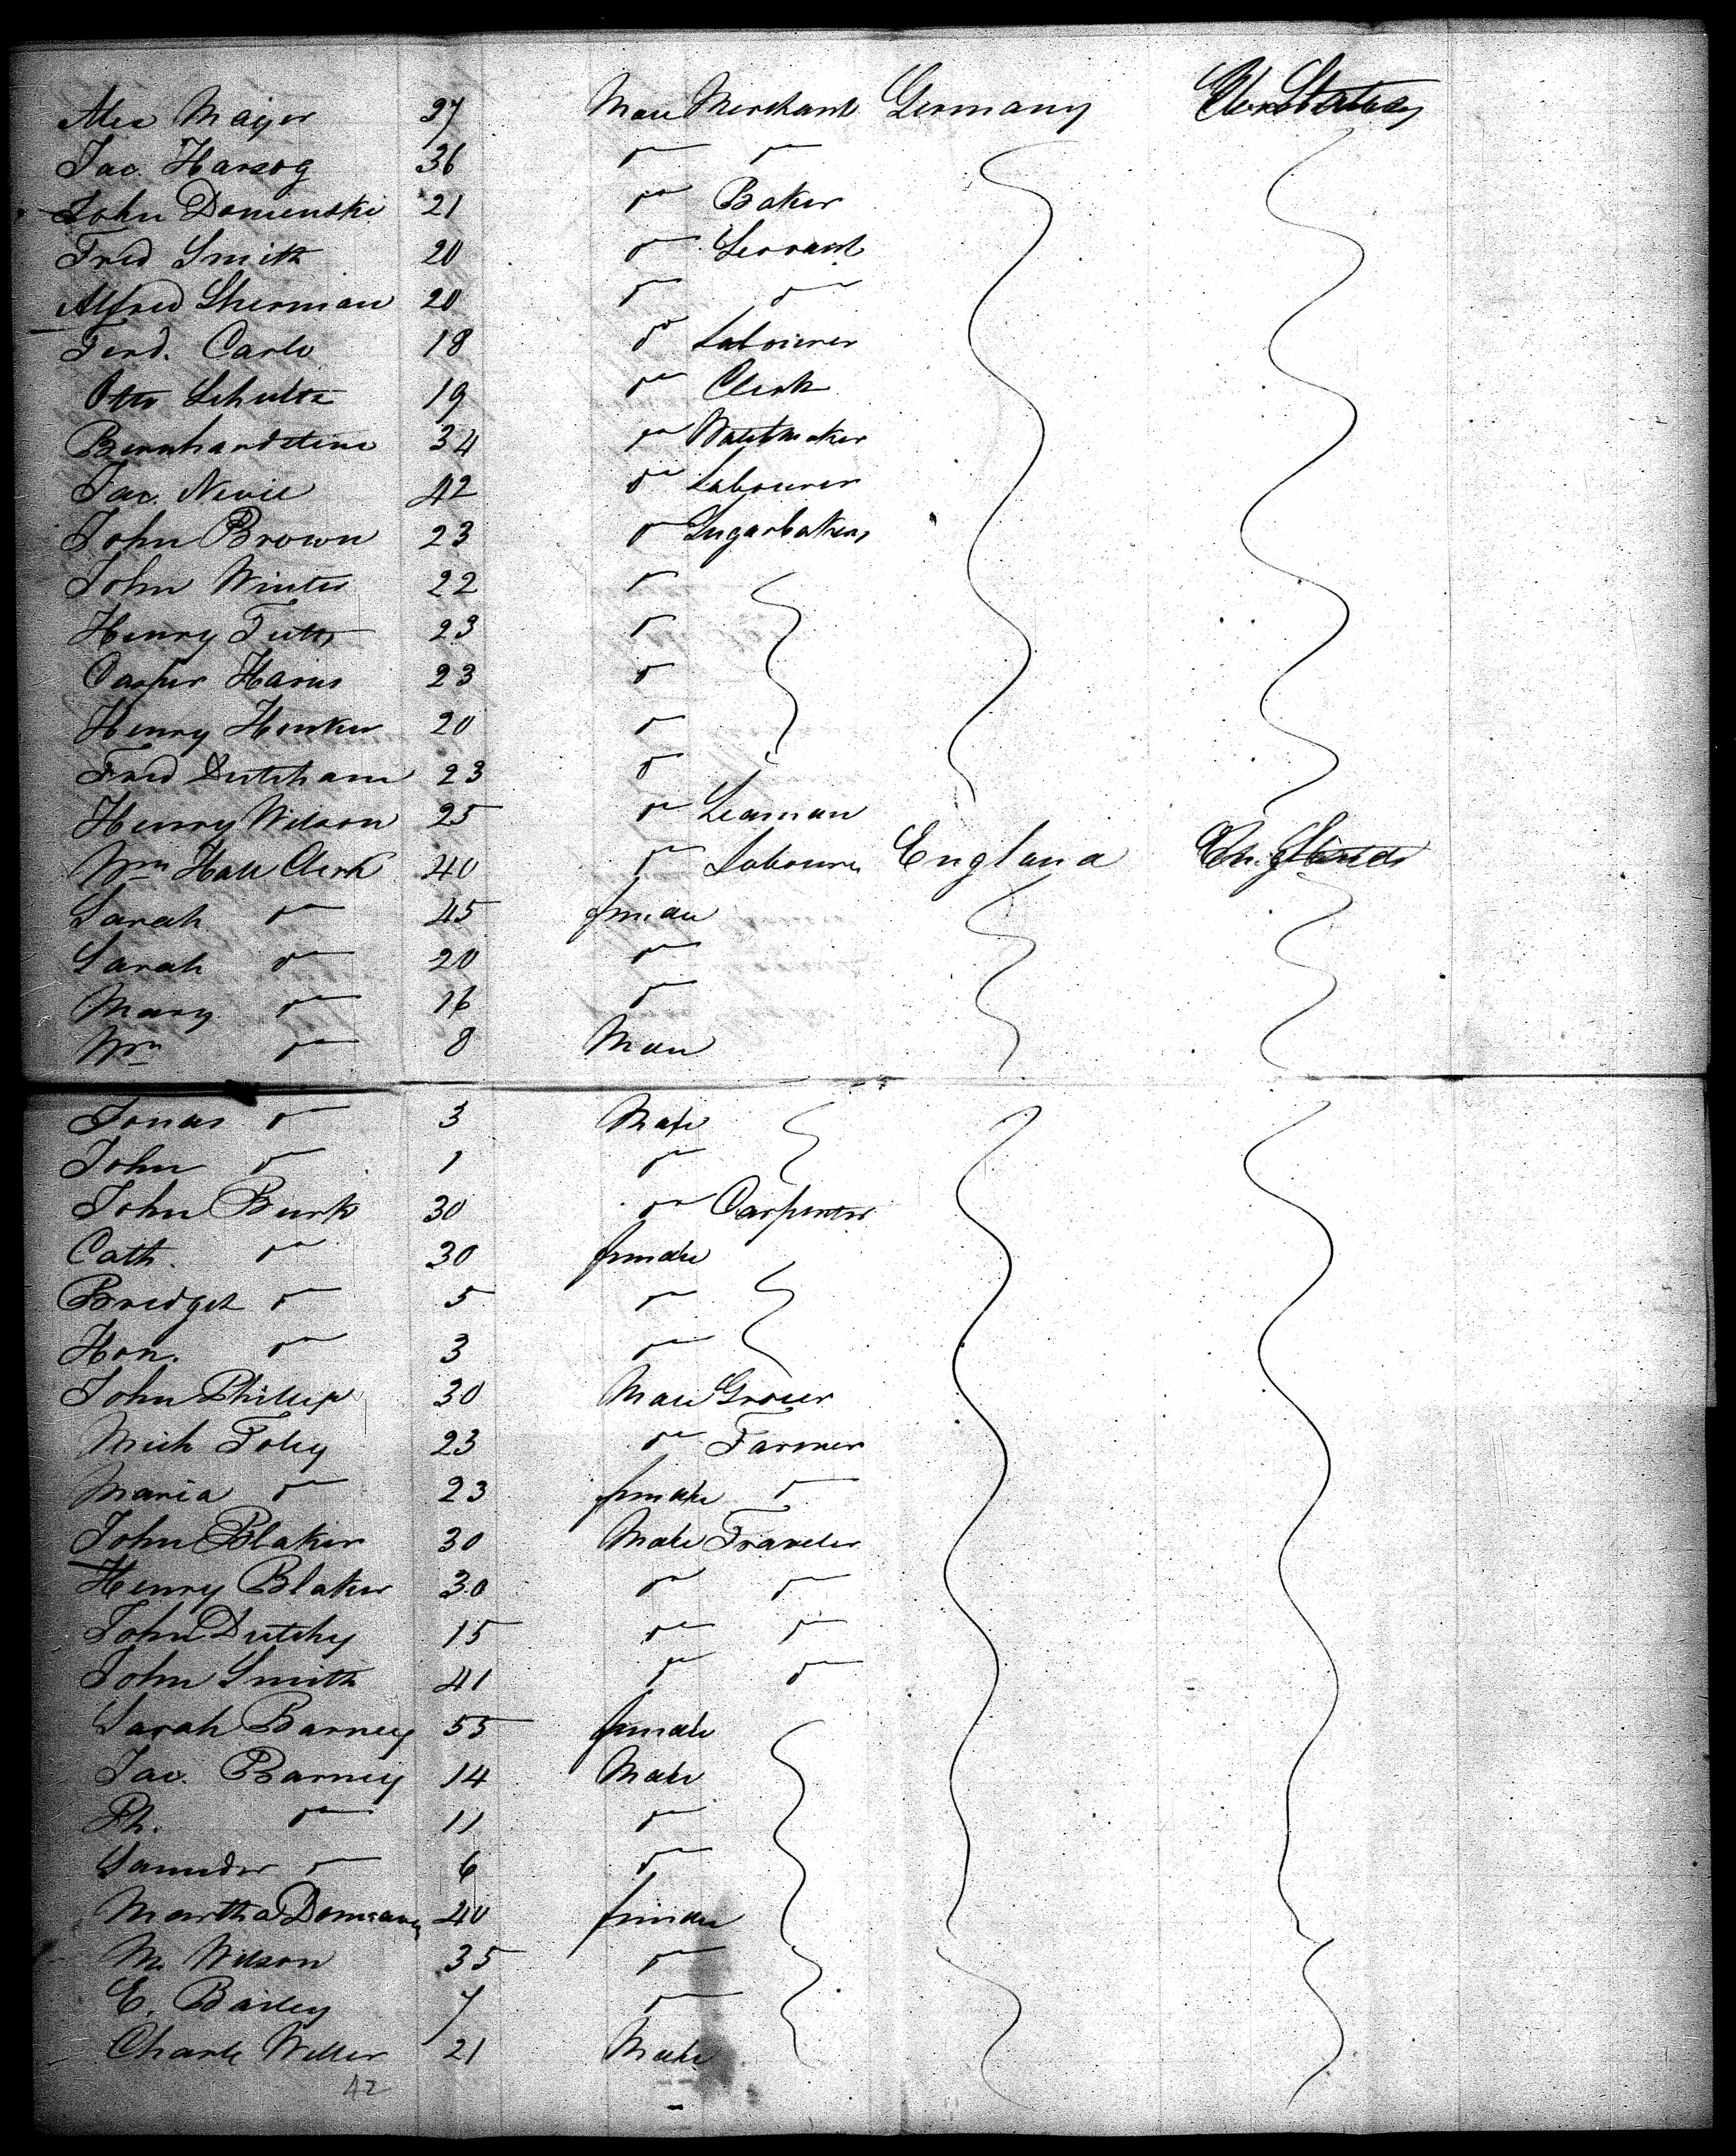 Alex Mayer 27 Male Merchant Germany Un. States
Jac. Harzog 36 do do
John Domienski 21 do Baker
Fred Smith 20 do Servant
Alfred Sherman 20 do do
Ferd. Carle 18 do Labourer
Otto Schultz 19 do Clerk
Bernhardstein 34 do Watchmaker
Jac. 42 do Labourer
John Brown 23 do Sugarbakers
John Winter 22 do
Henry 23 do
Casper 23 do
Henry Henker 20 do
Fred 23 do
Henry Wilson 25 do Seaman
Wm Hall Clerk 40 do Labourer England
Sarah do 45 female
Sarah do 20 do
Mary do 16 do
Wm do 8 Male
Jonas do 3 Male
John do 1 do
John Burk 30 do Carpenter
Cath. do 30 female
Bridget do 5 do
Hon. do 3 do
John Phillip 30 Male Grocer
Mich Foley 23 do Farmer
Maria do 23 female do
John Blaker 30 Male Traveler
Henry Blaker 30 do do
John Dutchy 15 do do
John Smith 41 do do
Sarah Barney 55 female
Jac. Barney 14 Male
Ph. do 11 do
do 6 do
Martha 40 female
M. Wilson 35 do
E. Bailey 7 do
Charle Weller 21 Male
42